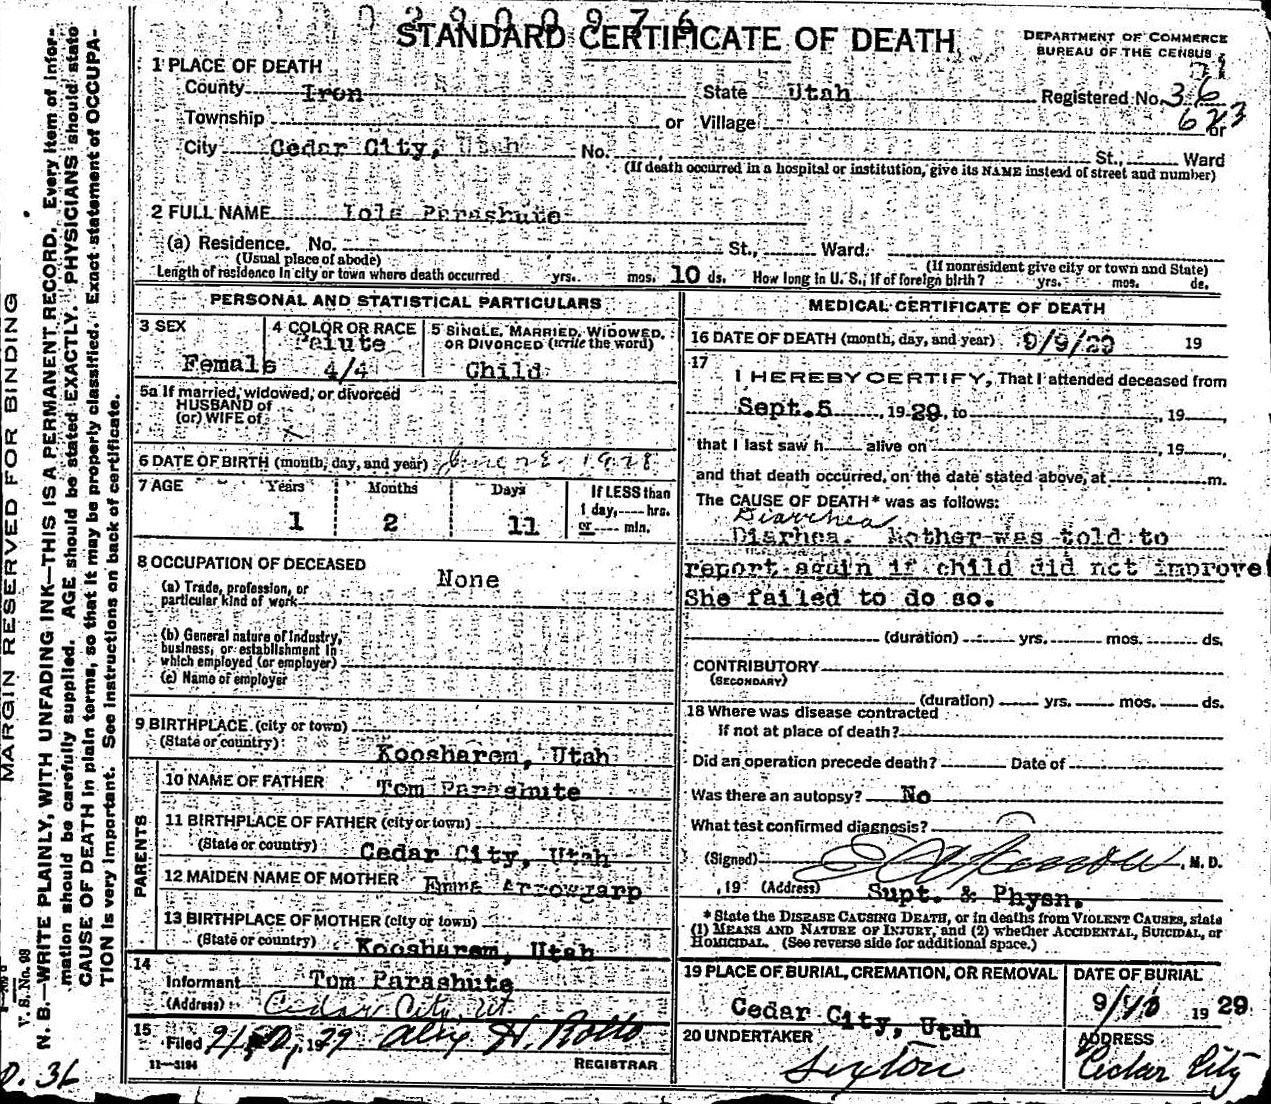 STANDARD CERTIFICATE OF DEATH
DEPARTMENT OF COMMERCE
BUREAU OF THE CENSUS
1 PLACE OF DEATH
County Iron State Utah Registered No. 36
Township or Village or
623
City Cedar City, Utah No. St., Ward
(If death occurred in a hospital or institution, give its NAME instead of street and number)
2 FULL NAME Iola Parashute
(a) Residence. No. St., Ward.
(Usual place of abode) (If nonresident give city or town and State)
Length of residence in city or town where death occurred yrs. mos. 10 ds. How long in U. S., if of foreign birth? yrs. mos. de.
PERSONAL AND STATISTICAL PARTICULARS
3 SEX
Female
4 COLOR OR RACE
Paiute
4/4
5 SINGLE, MARRIED, WIDOWED,
OR DIVORCED (write the word)
Child
5a If married, widowed, or divorced
HUSBAND of
(or) WIFE of
6 DATE OF BIRTH (month, day, and year) June 28, 1928
7 AGE Years Months Days If LESS than
1 day, hrs.
1 2 11 or min.
8 OCCUPATION OF DECEASED
None
(a) Trade, profession, or
particular kind of work
(b) General nature of industry,
business, or establishment in
which employed (or employer)
(c) Name of employer
9 BIRTHPLACE (city or town)
(State or country)
Koosharem, Utah
PARENTS
10 NAME OF FATHER Tom Parashute
11 BIRTHPLACE OF FATHER (city or town)
(State or country) Cedar City, Utah
12 MAIDEN NAME OF MOTHER Emma Arrowgarp
13 BIRTHPLACE OF MOTHER (city or town)
(State or country) Koosharem, Utah
14
Informant Tom Parashute
(Address) Cedar City, Ut
15
Filed
REGISTRAR
11—3184
MEDICAL CERTIFICATE OF DEATH
16 DATE OF DEATH (month, day, and year) 9/9/29 19
17
I HEREBY CERTIFY, That I attended deceased from
Sept. 5, 1929, to , 19
that I last saw h alive on , 19
and that death occurred, on the date stated above, at m.
The CAUSE OF DEATH* was as follows:
Diarrhea
Diarhea. Mother was told to
report again if child did not improve
She failed to do so.
(duration) yrs. mos. ds.
CONTRIBUTORY
(SECONDARY)
(duration) yrs. mos. ds.
18 Where was disease contracted
If not at place of death?
Did an operation precede death? Date of
Was there an autopsy? No
What test confirmed diagnosis?
(Signed) , M. D.
, 19 (Address) Supt. & Physn.
* State the DISEASE CAUSING DEATH, or in deaths from VIOLENT CAUSES, state
(1) MEANS AND NATURE OF INJURY, and (2) whether ACCIDENTAL, SUICIDAL, or
HOMICIDAL. (See reverse side for additional space.)
19 PLACE OF BURIAL, CREMATION, OR REMOVAL
Cedar City, Utah
DATE OF BURIAL
9/10 1929
20 UNDERTAKER
Sexton
ADDRESS
Cedar City
MARGIN RESERVED FOR BINDING
V. S. No. 98
N. B.—WRITE PLAINLY, WITH UNFADING INK—THIS IS A PERMANENT RECORD. Every item of infor-
mation should be carefully supplied. AGE should be stated EXACTLY. PHYSICIANS should state
CAUSE OF DEATH in plain terms, so that it may be properly classified. Exact statement of OCCUPA-
TION is very important. See instructions on back of certificate.